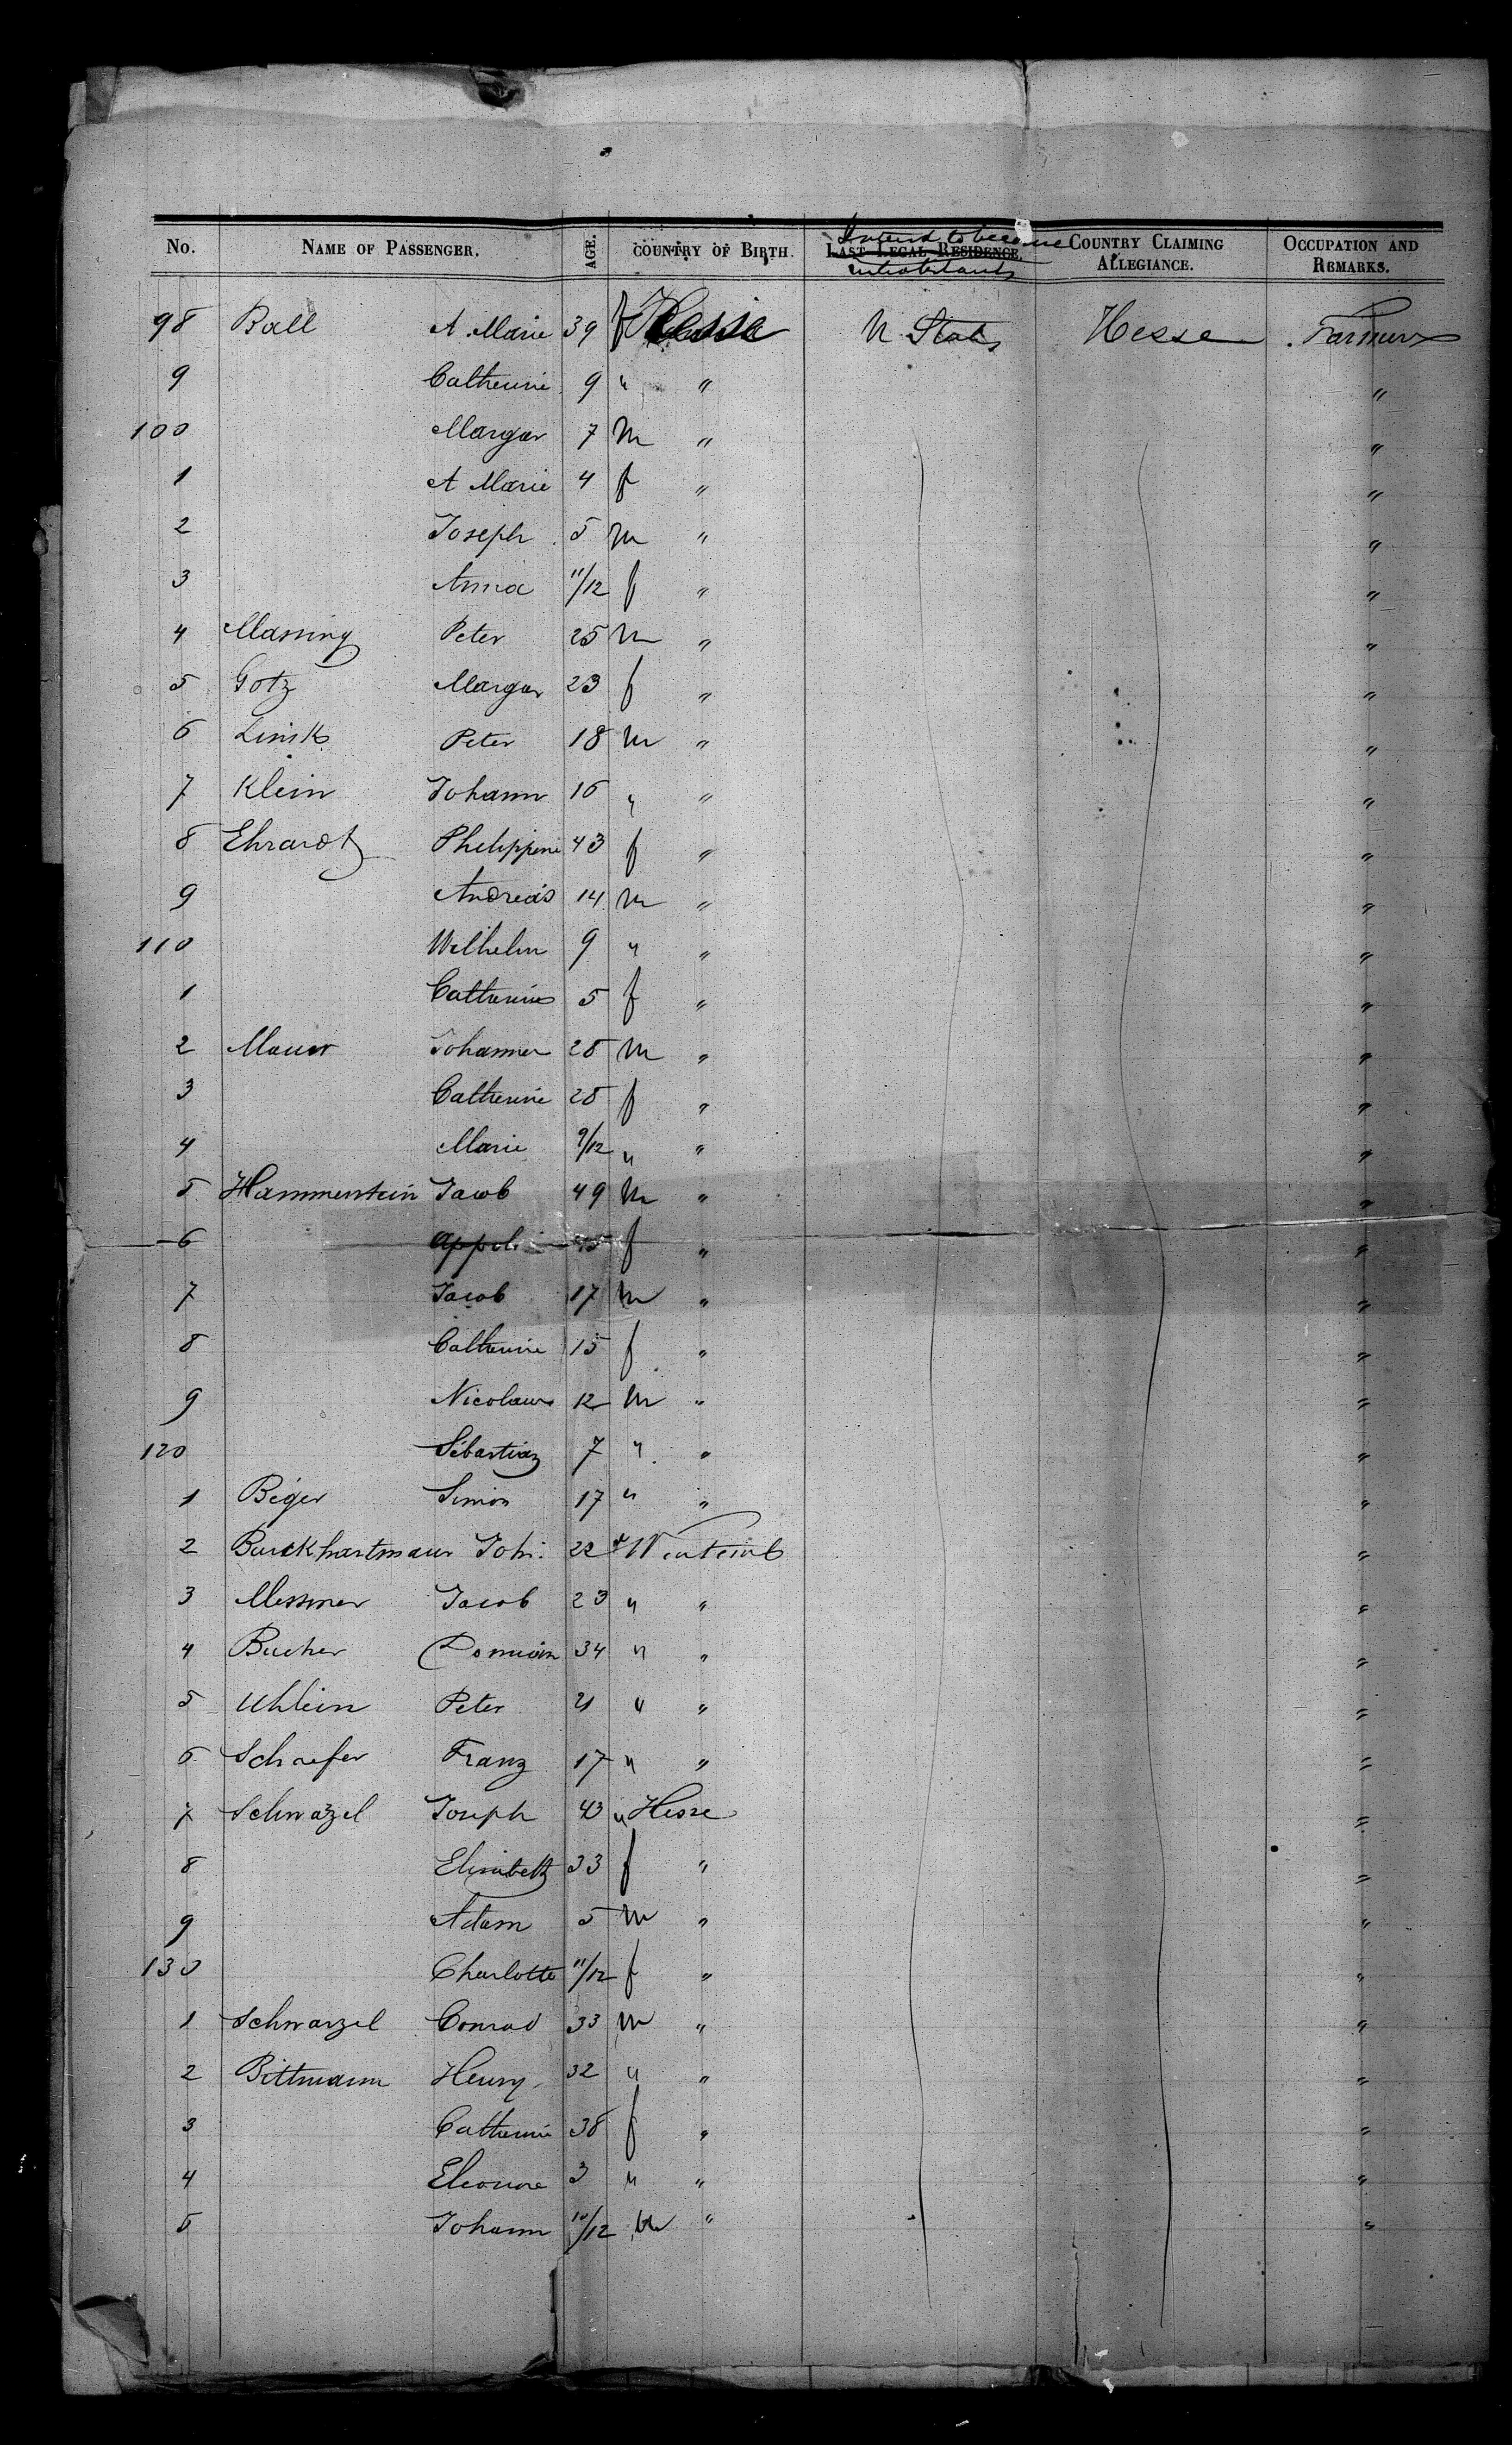 No. NAME OF PASSENGER. AGE. COUNTRY OF BIRTH. LAST LEGAL RESIDENCE. Intend to become inhabitants COUNTRY CLAIMING ALLEGIANCE. OCCUPATION AND REMARKS.
98 Ball A. Marie 39 f Hesse U States Hesse Farmers
9 Catherine 9 " " "
100 Margar 7 m " "
1 A Marie 4 f " "
2 Joseph 5 m " "
3 Anna 11/12 f " "
4 Massing Peter 25 m " "
5 Gotz Margar 23 f " "
6 Peter 18 m " "
7 Klein Johann 16 " " "
8 Ehrardt Philippine 43 f " "
9 Andreas 14 m " "
110 Wilhelm 9 " " "
1 Catherine 5 f " "
2 Mauer Johannes 28 m " "
3 Catherine 28 f " "
4 Marie 9/12 " " "
5 Hammerstein Jacob 49 m " "
6 45 f " "
7 Jacob 17 m " "
8 Catherine 15 f " "
9 Nicolaus 12 m " "
120 Sebastian 7 " " "
1 Beger Simon 17 " " "
2 Burckhartmaur Joh. 22 " "
3 Messmer Jacob 23 " " "
4 Bucher 34 " " "
5 Uhlein Peter 21 " " "
6 Schaefer Franz 17 " " "
7 Schwazel Joseph 43 " Hesse "
8 Elisabeth 33 f " "
9 Adam 5 m " "
130 Charlotte 11/12 f " "
1 Schwarzel Conrad 33 m " "
2 Bittmann Henry 32 " " "
3 Catherine 38 f " "
4 Eleonore 3 " " "
5 Johann 10/12 m " "